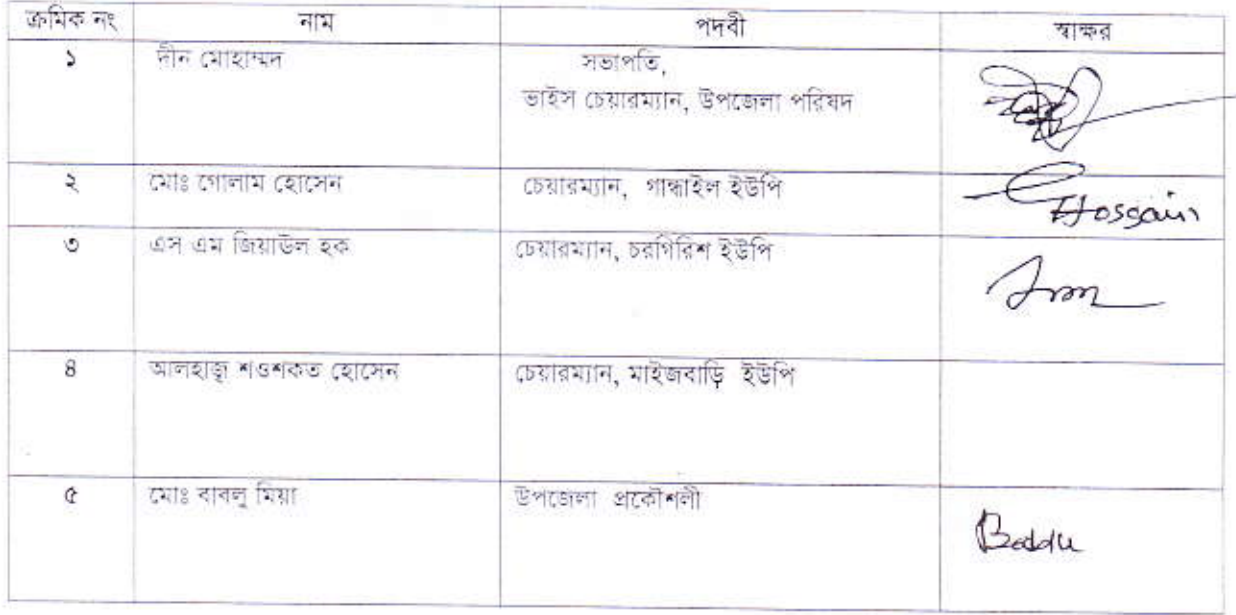 ক্রমিক নং নাম পদবী স্বাক্ষর
১ দীন মোহাম্মদ সভাপতি,
ভাইস চেয়ারম্যান, উপজেলা পরিষদ
২ মোঃ গোলাম হোসেন চেয়ারম্যান, গান্ধাইল ইউপি
Hossain
৩ এস এম জিয়াউল হক চেয়ারম্যান, চরগিরিশ ইউপি
৪ আলহাজ্ব শওশকত হোসেন চেয়ারম্যান, মাইজবাড়ি ইউপি
৫ মোঃ বাবলু মিয়া উপজেলা প্রকৌশলী